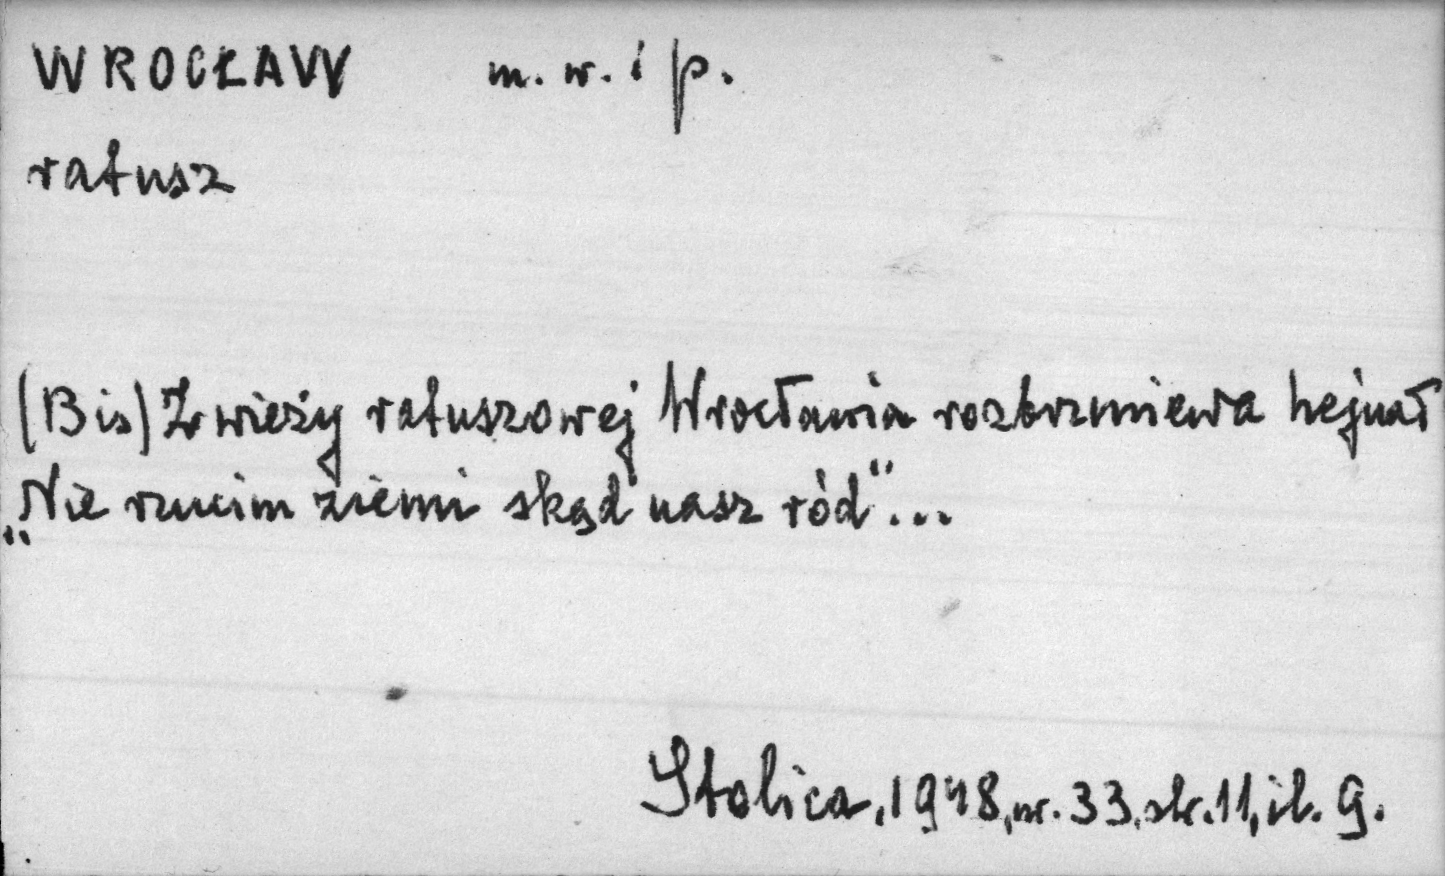 WROCŁAW m. w. i p.
ratusz
(Bis) Z wieży ratuszowej Wrocławia rozbrzmiewa hejnał
„Nie rzucim ziemi skąd nasz ród“...
Stolica, 1948, nr. 33, str. 11, il. 9.